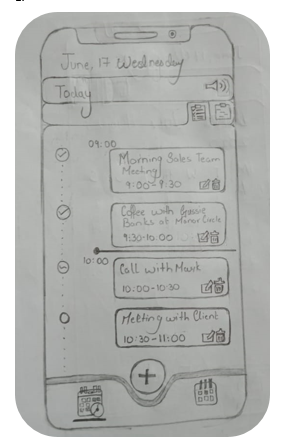 June, 17 Wednesday
Today
09:00
Morning Sales Team
Meeting
9:00-9:30
Coffee with
Banks at Manor
9:30-10:00
10:00
Call with Mark
10:00-10:30
Meeting with Client
10:30-11:00